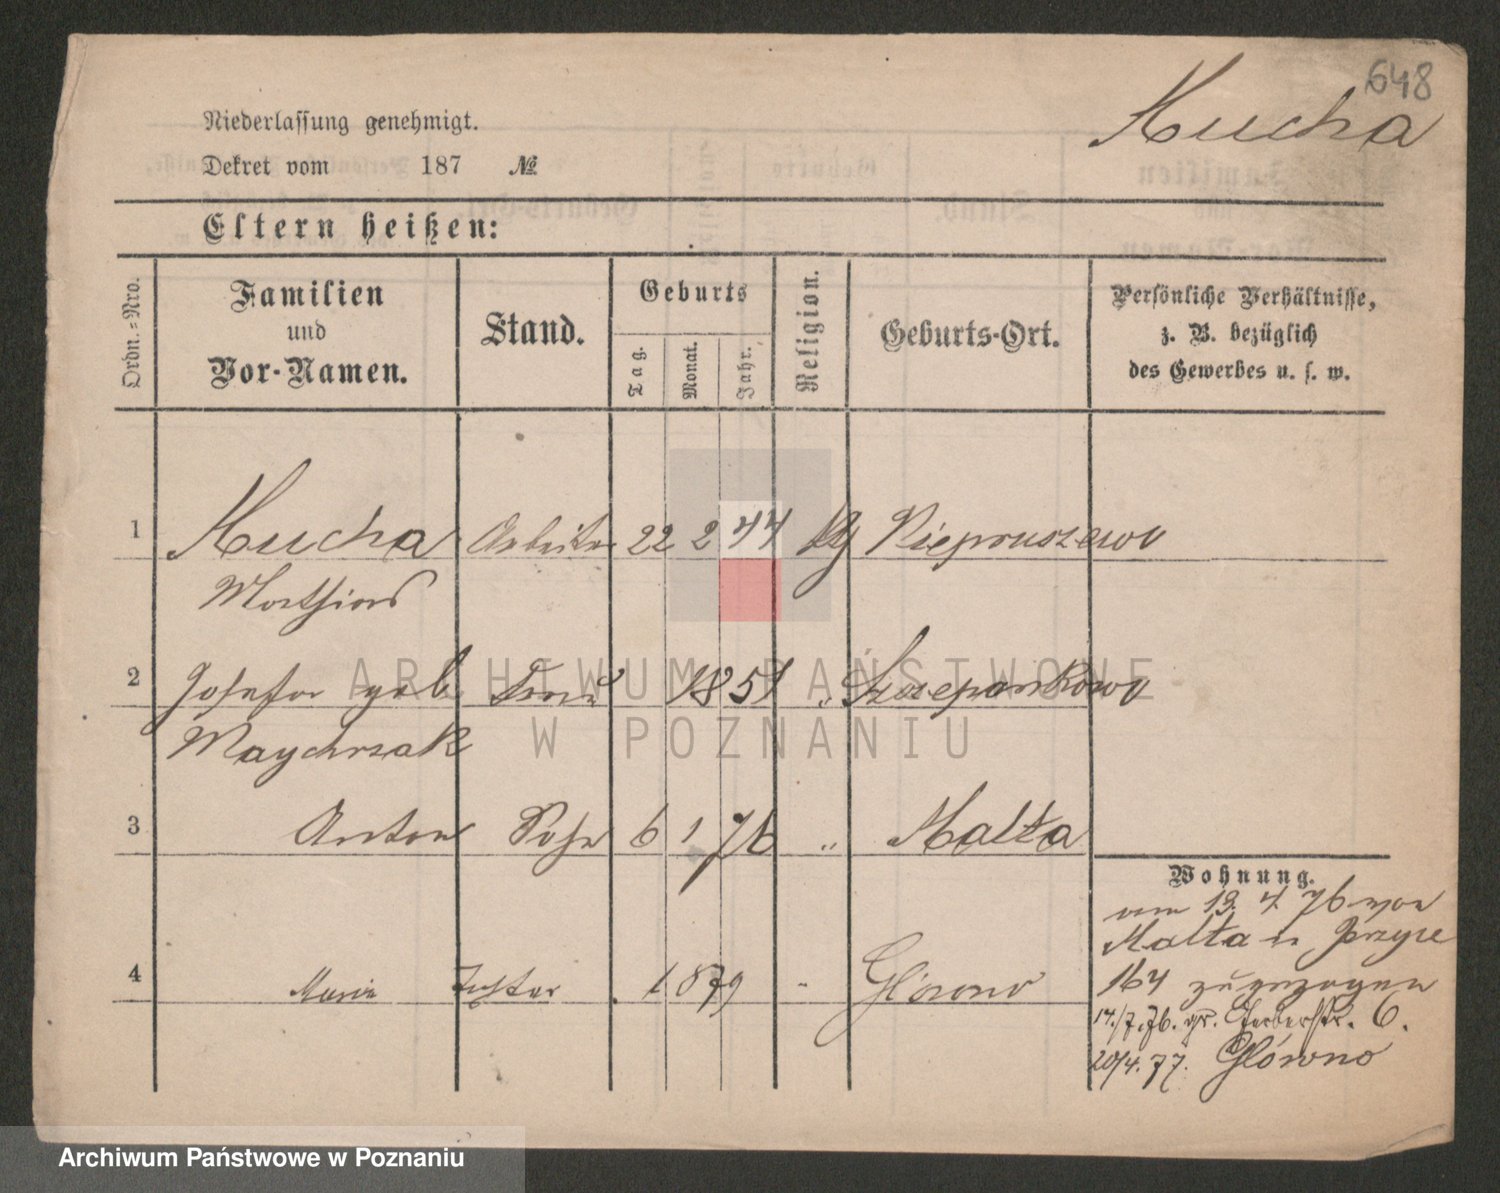 648
Mucha
Niederlassung genehmigt.
Dekret vom 187 №
Eltern heißen:
Ordn.=Nro.
Familien und Vor-Namen.
Stand.
Geburts
Tag. Monat. Jahr.
Religion.
Geburts-Ort.
Persönliche Verhältnisse,
z. B. bezüglich
des Gewerbes u. s. w.
1 Mucha Arbeiter 22 2 44 Piepruszewo
Mathias
2 Josefa geb. 1851 " Szczepankowo
Maychrzak
3 Anton Sohn 6 1 76 " Malta
Wohnung.
4 Marie Tochter 1879 " Glówno
19. 4. 76 von
Malta n
164 zugezogen
14./7.76. gr. Gerberstr. 6.
20/4. 77. Glówno
ARCHIWUM PAŃSTWOWE
W POZNANIU
Archiwum Państwowe w Poznaniu